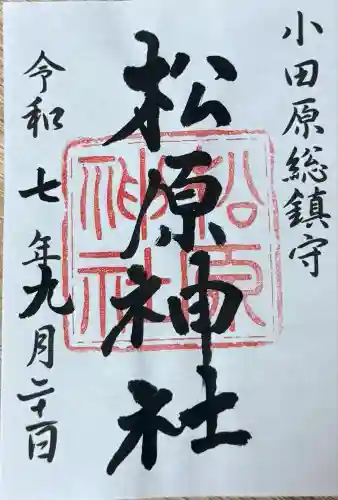 小田原総鎮守
松原神社
松原
神社
令和七年九月二十一日